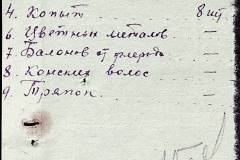 4. Копыт 8 шт
6. Цветных металов —
7. Балонов от —
8. Конских волос —
9. Тряпок —